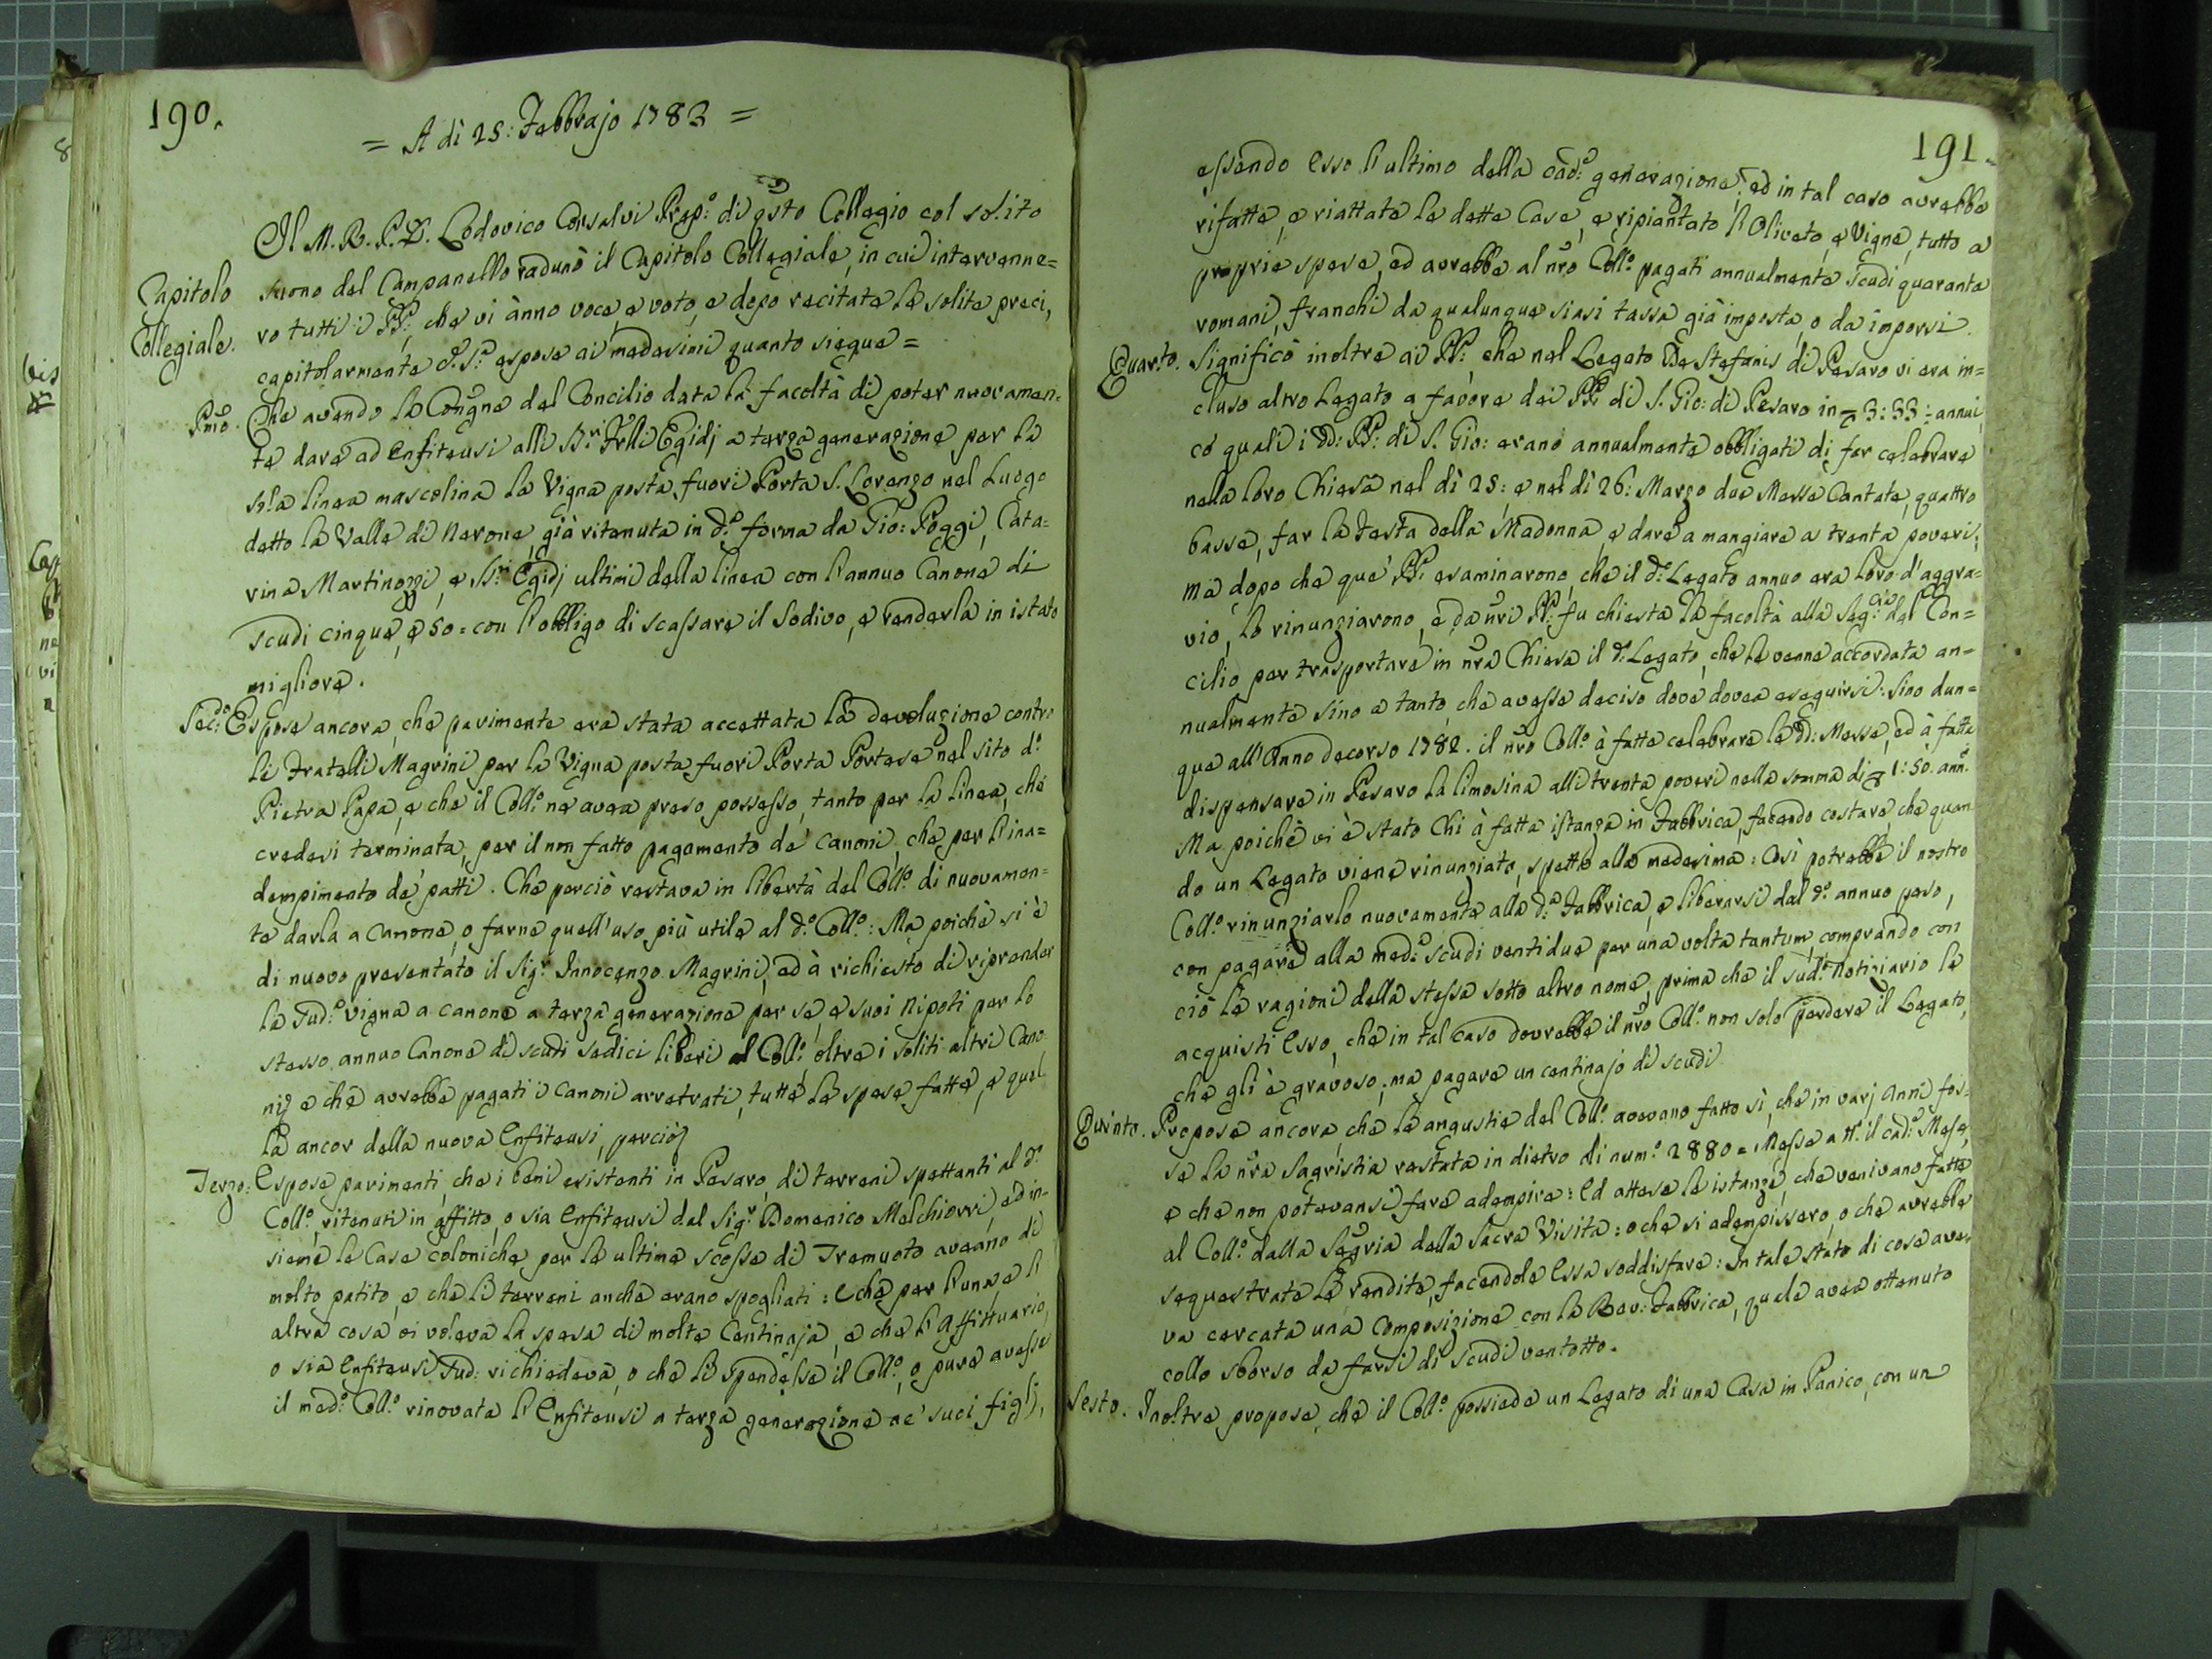 190.
= A dì 25: Febbrajo 1783 =
Il M. R. P. D. Lodovico Consalvi Prep.o di qsto Collegio col solito
Capitolo
Collegiale.
suono del Campanello radunò il Capitolo Collegiale, in cui intervenne=
ro tutti i PP: che vi ànno voce, e voto, e dopo recitate le solite preci,
capitolarmente espose ai medesimi quanto siegue =
Pmo. Che avendo la Congne del Concilio data la facoltà di poter nuovamen=
te dare ad Enfiteusi alli SSri Frlli Egidj a terza generazione per la
sola linea mascolina la Vigna posta fuori Porta S. Lorenzo nel Luogo
detto la Valle di Nerone, già ritenuta in d.a forma da Gio: Poggi, Cata=
rina Martinozzi, e SSri Egidj ultimi della linea con l'annuo Canone di
scudi cinque, e 50 = con l'obbligo di scassare il Sodivo, e renderla in istato
migliore.
Sec.do Espose ancora, che parimente era stata accettata la devoluzione contro
li Fratelli Magrini per la Vigna posta fuori Porta Portese nel sito d.o
Pietra Papa, e che il Coll.o ne avea preso possesso, tanto per la linea, che
credesi terminata, per il non fatto pagamento de' canoni, che per l'ina=
dempimento de' patti. Che perciò restava in libertà del Coll.o di nuovamen=
te darla a Canone, o farne quell'uso più utile al d.o Coll.o: Ma poichè si è
di nuovo presentato il Sig.r Innocenzo Magrini, ed à richiesto di riprender
la Sud.a vigna a canone a terza generazione per se, e suoi Nipoti per lo
stesso annuo Canone di scudi sedici liberi al Coll.o oltre i soliti altri Cano=
ni, e che avrebbe pagati i Canoni arretrati, tutte le spese fatte, e quel=
la ancor della nuova Enfiteusi, perciò
Terzo: Espose parimenti, che i beni esistenti in Pesaro, di terreni spettanti al d.o
Coll.o, ritenuti in affitto, o sia Enfiteusi dal Sig.r Domenico Melchiorri, ed in=
sieme le Case coloniche per le ultime scosse di Tremuoto aveano di
molto patito, e che li terreni anche erano spogliati: e che per l'una, e l'
altra cosa vi voleva la spesa di molte Centinaja, e che l'Affittuario,
o sia Enfiteusi Sud: richiedeva, o che li spendesse il Coll.o, o pure avesse
il med.o Coll.o rinovata l'Enfiteusi a terza generazione ne' suoi figlj,
191.
essendo Esso l'ultimo della cad.a generazione, ed in tal caso avrebbe
rifatte, e riattate le dette Case, e ripiantato l'Oliveto, e Vigne, tutto a
proprie spese, ed avrebbe al nro Coll.o pagati annualmente Scudi quaranta
romani, franchi da qualunque siasi tassa già imposta, o da imporsi.
Quarto. Significò inoltre ai PP: che nel Legato De Stefanis di Pesaro vi era in=
cluso altro Legato a favore dei PP: di S. Gio: di Pesaro in 3:33: annui,
co' quali i dd: PP: di S. Gio: erano annualmente obbligati di far celebrare
nella loro Chiesa nel dì 25: e nel dì 26: Marzo due Messe Cantate, quattro
basse, far la Festa della Madonna, e dare a mangiare a trenta poveri;
ma dopo che que' PP: esaminarono, che il d.o Legato annuo era loro d'aggra=
vio, lo rinunziarono, e da nri PP: fu chiesta la facoltà alla Seg.ria del Con=
cilio per trasportare in nra Chiesa il d.o Legato, che le venne accordata an=
nualmente sino a tanto, che avesse deciso dove dovea eseguirsi: Sino dun=
que all'Anno decorso 1782. il nro Coll.o à fatte celebrare le dd: Messe, ed à fatta
dispensare in Pesaro la limosina alli trenta poveri nella somma di 1:50. ann.e
Ma poichè vi è stato chi à fatta istanza in Fabbrica, facendo costare, che quan=
do un Legato viene rinunziato, spetta alla medesima: Così potrebbe il nostro
Coll.o rinunziarlo nuovamente alla d.a Fabbrica, e liberarsi dal d.o annuo peso,
con pagare alla med.a scudi ventidue per una volta tantum, comprando con
ciò le ragioni della stessa sotto altro nome, prima che il sud.o Notiziario le
acquisti Esso, che in tal caso dovrebbe il nro Coll.o non solo perdere il Legato,
che gli è gravoso; ma pagare un centinajo di scudi
Quinto. Propose ancora, che le angustie del Coll.o avevano fatto sì, che in varj Anni fos=
se la nra Sagristia restata in dietro di num.o 2880 = Messe a tt.o il cad.e Mese,
e che non potevansi fare adempire: Ed attese le istanze, che venivano fatte
al Coll.o dalla Segria della Sacra Visita: o che si adempissero, o che avrebbe
sequestrate le rendite, facendole Essa soddisfare: In tale stato di cose ave=
va cercata una Composizione con la Rev: Fabbrica, quale avea ottenuto
collo sborso da farsi di scudi ventotto.
Sesto. Inoltre propose, che il Coll.o possiede un Legato di una Casa in Panico, con un